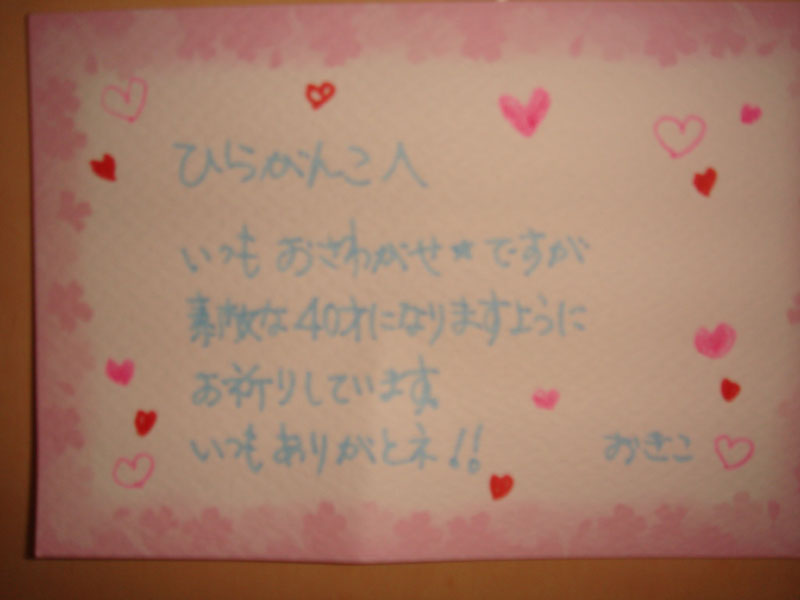 ひらがんこ人
いつもおさわがせ★ですが
素敵な40才になりますように
お祈りしています。
いつもありがとネ!!
おきこ